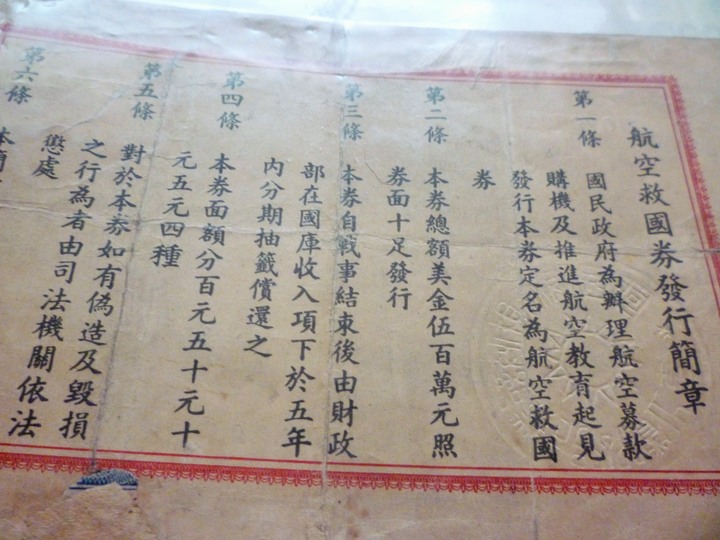 航空救國券發行簡章
第一條 國民政府為辦理航空募款
購機及推進航空教育起見
發行本券定名為航空救國
券
第二條 本券總額美金伍百萬元照
券面十足發行
第三條 本券自戰事結束後由財政
部在國庫收入項下於五年
內分期抽籤償還之
第四條 本券面額分百元五十元十
元五元四種
第五條 對於本券如有偽造及毀損
之行為者由司法機關依法
懲處
第六條 本簡